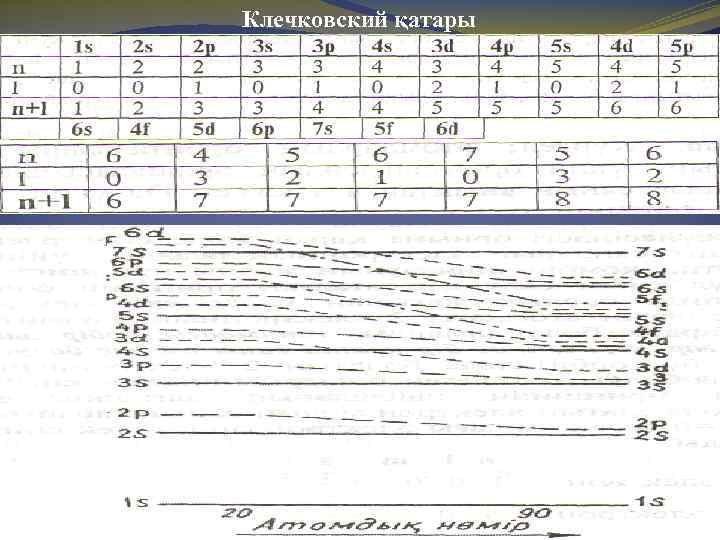 Клечковский қатары
1s 2s 2p 3s 3p 4s 3d 4p 5s 4d 5p
n 1 2 2 3 3 4 3 4 5 4 5
l 0 0 1 0 1 0 2 1 0 2 1
n+l 1 2 3 3 4 4 5 5 5 6 6
6s 4f 5d 6p 7s 5f 6d
n 6 4 5 6 7 5 6
l 0 3 2 1 0 3 2
n+l 6 7 7 7 7 8 8
F 6d
7s 7s
6p 6d
5d 6s
5f
P 4d 5s
5s 4f
4p 4d
3d 4s
4s
3p 3d
3s 3s
2p 2p
2s 2s
1s 1s
20 90
Атомдық нөмір